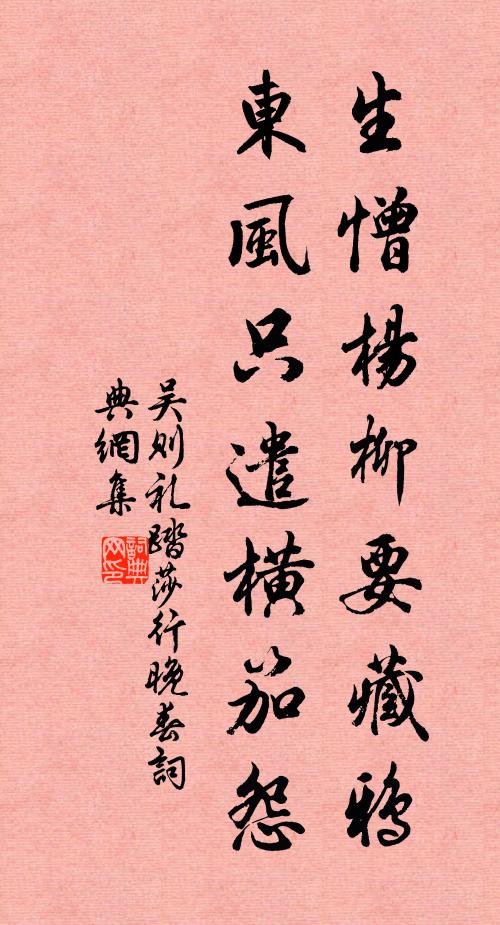 生憎楊柳要藏鴉
東風只遣橫笳怨
吴则礼踏莎行晚春詞
典網集
詞典
网印